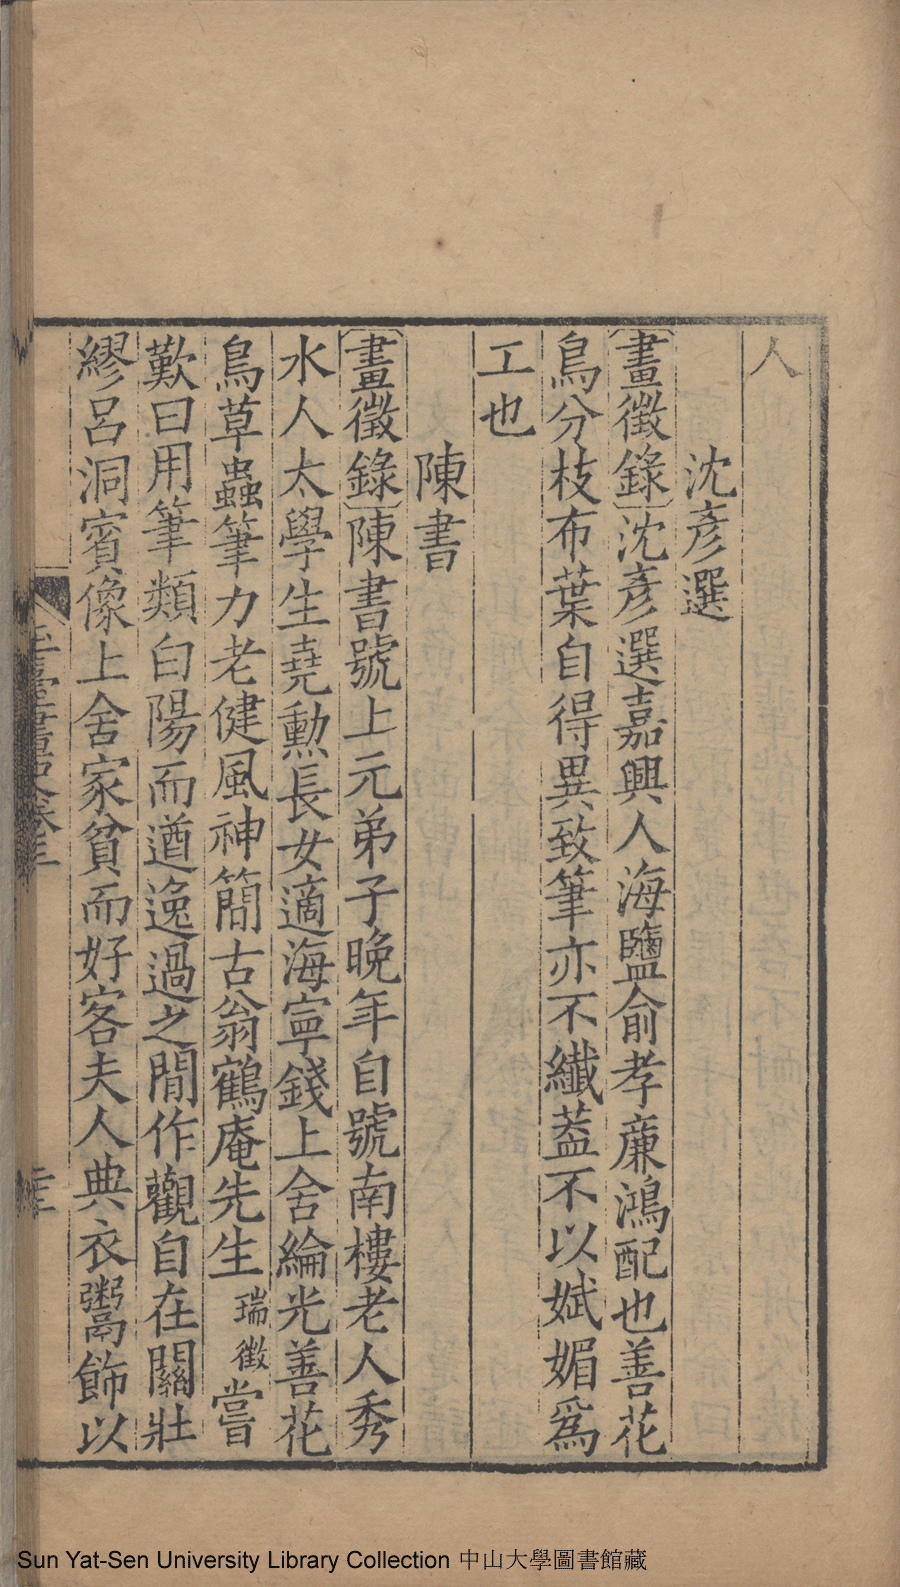 人
沈彥選
畫徵錄沈彥選嘉興人海鹽俞孝廉鴻配也善花
鳥分枝布葉自得異致筆亦不纖葢不以娬媚爲
工也
陳書
畫徵錄陳書號上元弟子晚年自號南樓老人秀
水人太學生堯勳長女適海寧錢上舍綸光善花
鳥草蟲筆力老健風神簡古翁鶴庵先生瑞徵嘗
歎曰用筆類白陽而遒逸過之閒作觀自在關壯
繆呂洞賓像上舍家貧而好客夫人典衣鬻飾以
玉臺畫史卷三
Sun Yat-Sen University Library Collection 中山大學圖書館藏